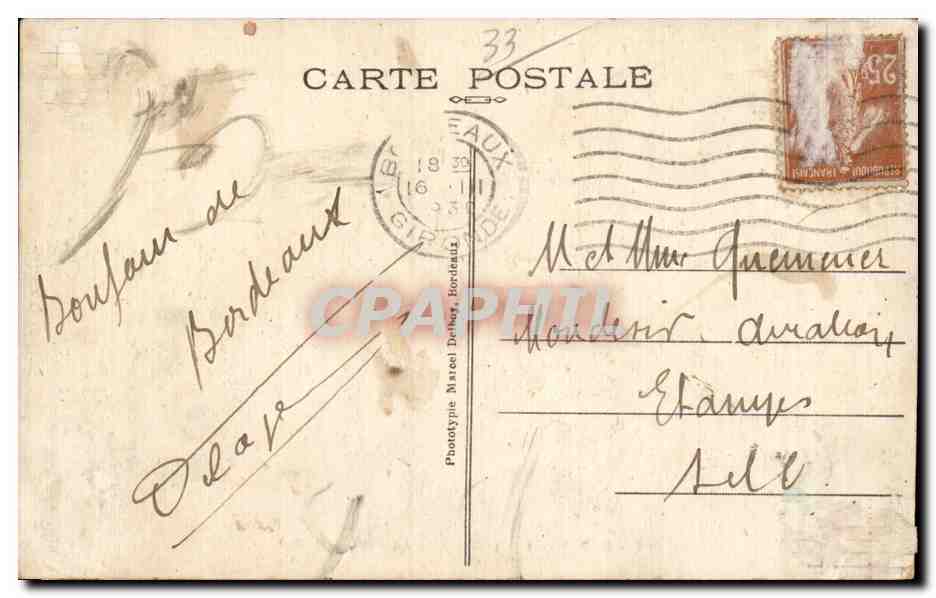 33
CARTE POSTALE
BORDEAUX
18 30
16 III
GIRONDE
25c
REPUBLIQUE FRANÇAISE
Bonjour de
Bordeaux
Delage
M et Mme Quemener
Mondesir. Aviation
Etampes
S et O
Phototypie Marcel Delboy, Bordeaux
CPAPHIL